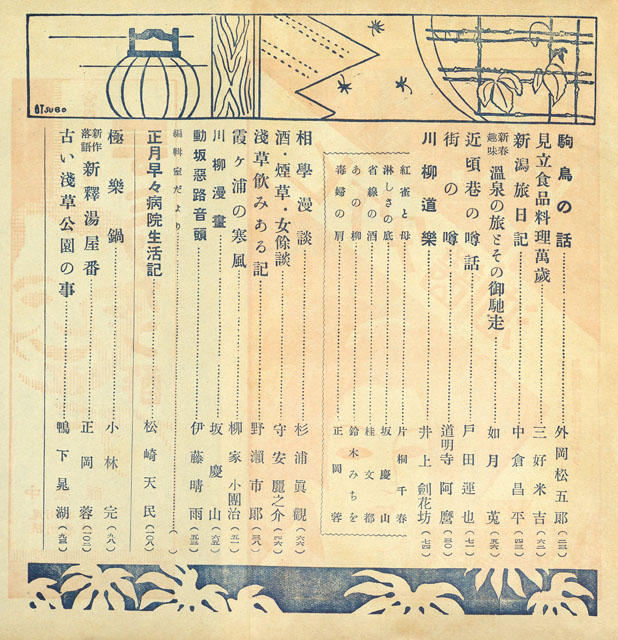 駒鳥の話 外岡松五郎(二三)
見立食品料理萬歳 三好米吉(六二)
新潟旅日記 中倉昌平(四三)
新春趣味 溫泉の旅とその御馳走 如月蒐(五六)
近頃巷の噂話 戸田運也(七一)
街の噂 道明寺阿麿(三〇)
川柳道樂 井上劍花坊(七四)
紅雀と母 片桐千春
淋しさの底 坂慶山
省線の酒 桂文都
あの柳 鈴木みちを
毒婦の肩 正岡蓉
相學漫談 杉浦眞觀(六六)
酒・煙草・女餘談 守安麗之介(四六)
淺草飲みある記 野瀨市郎(三八)
霞ヶ浦の寒風 柳家小團治(五一)
川柳漫畫 坂慶山(六五)
動坂惡路音頭 伊藤晴雨(五三)
編輯室だより
正月早々病院生活記 松崎天民(一〇八)
極樂鍋 小林完(九八)
新作落語 新釋湯屋番 正岡蓉(一〇二)
古い淺草公園の事 鴨下晁湖(九五)
OTSUBO